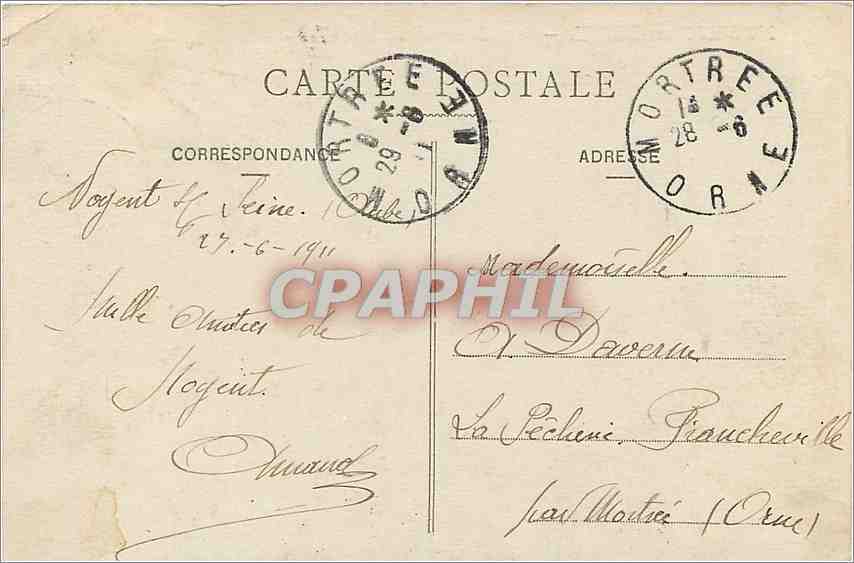 CARTE POSTALE
MORTREE
8 *
29 -6
11
ORNE
MORTREE
14 *
28 -6
ORNE
CORRESPONDANCE
ADRESSE
Nogent s/ Seine. (Aube)
27-6-1911
Mille Amitiés de
Nogent.
Amand
Mademoiselle.
A. Davernn
La Pêcherie. Francheville
par Mortrée (Orne)
CPAPHIL